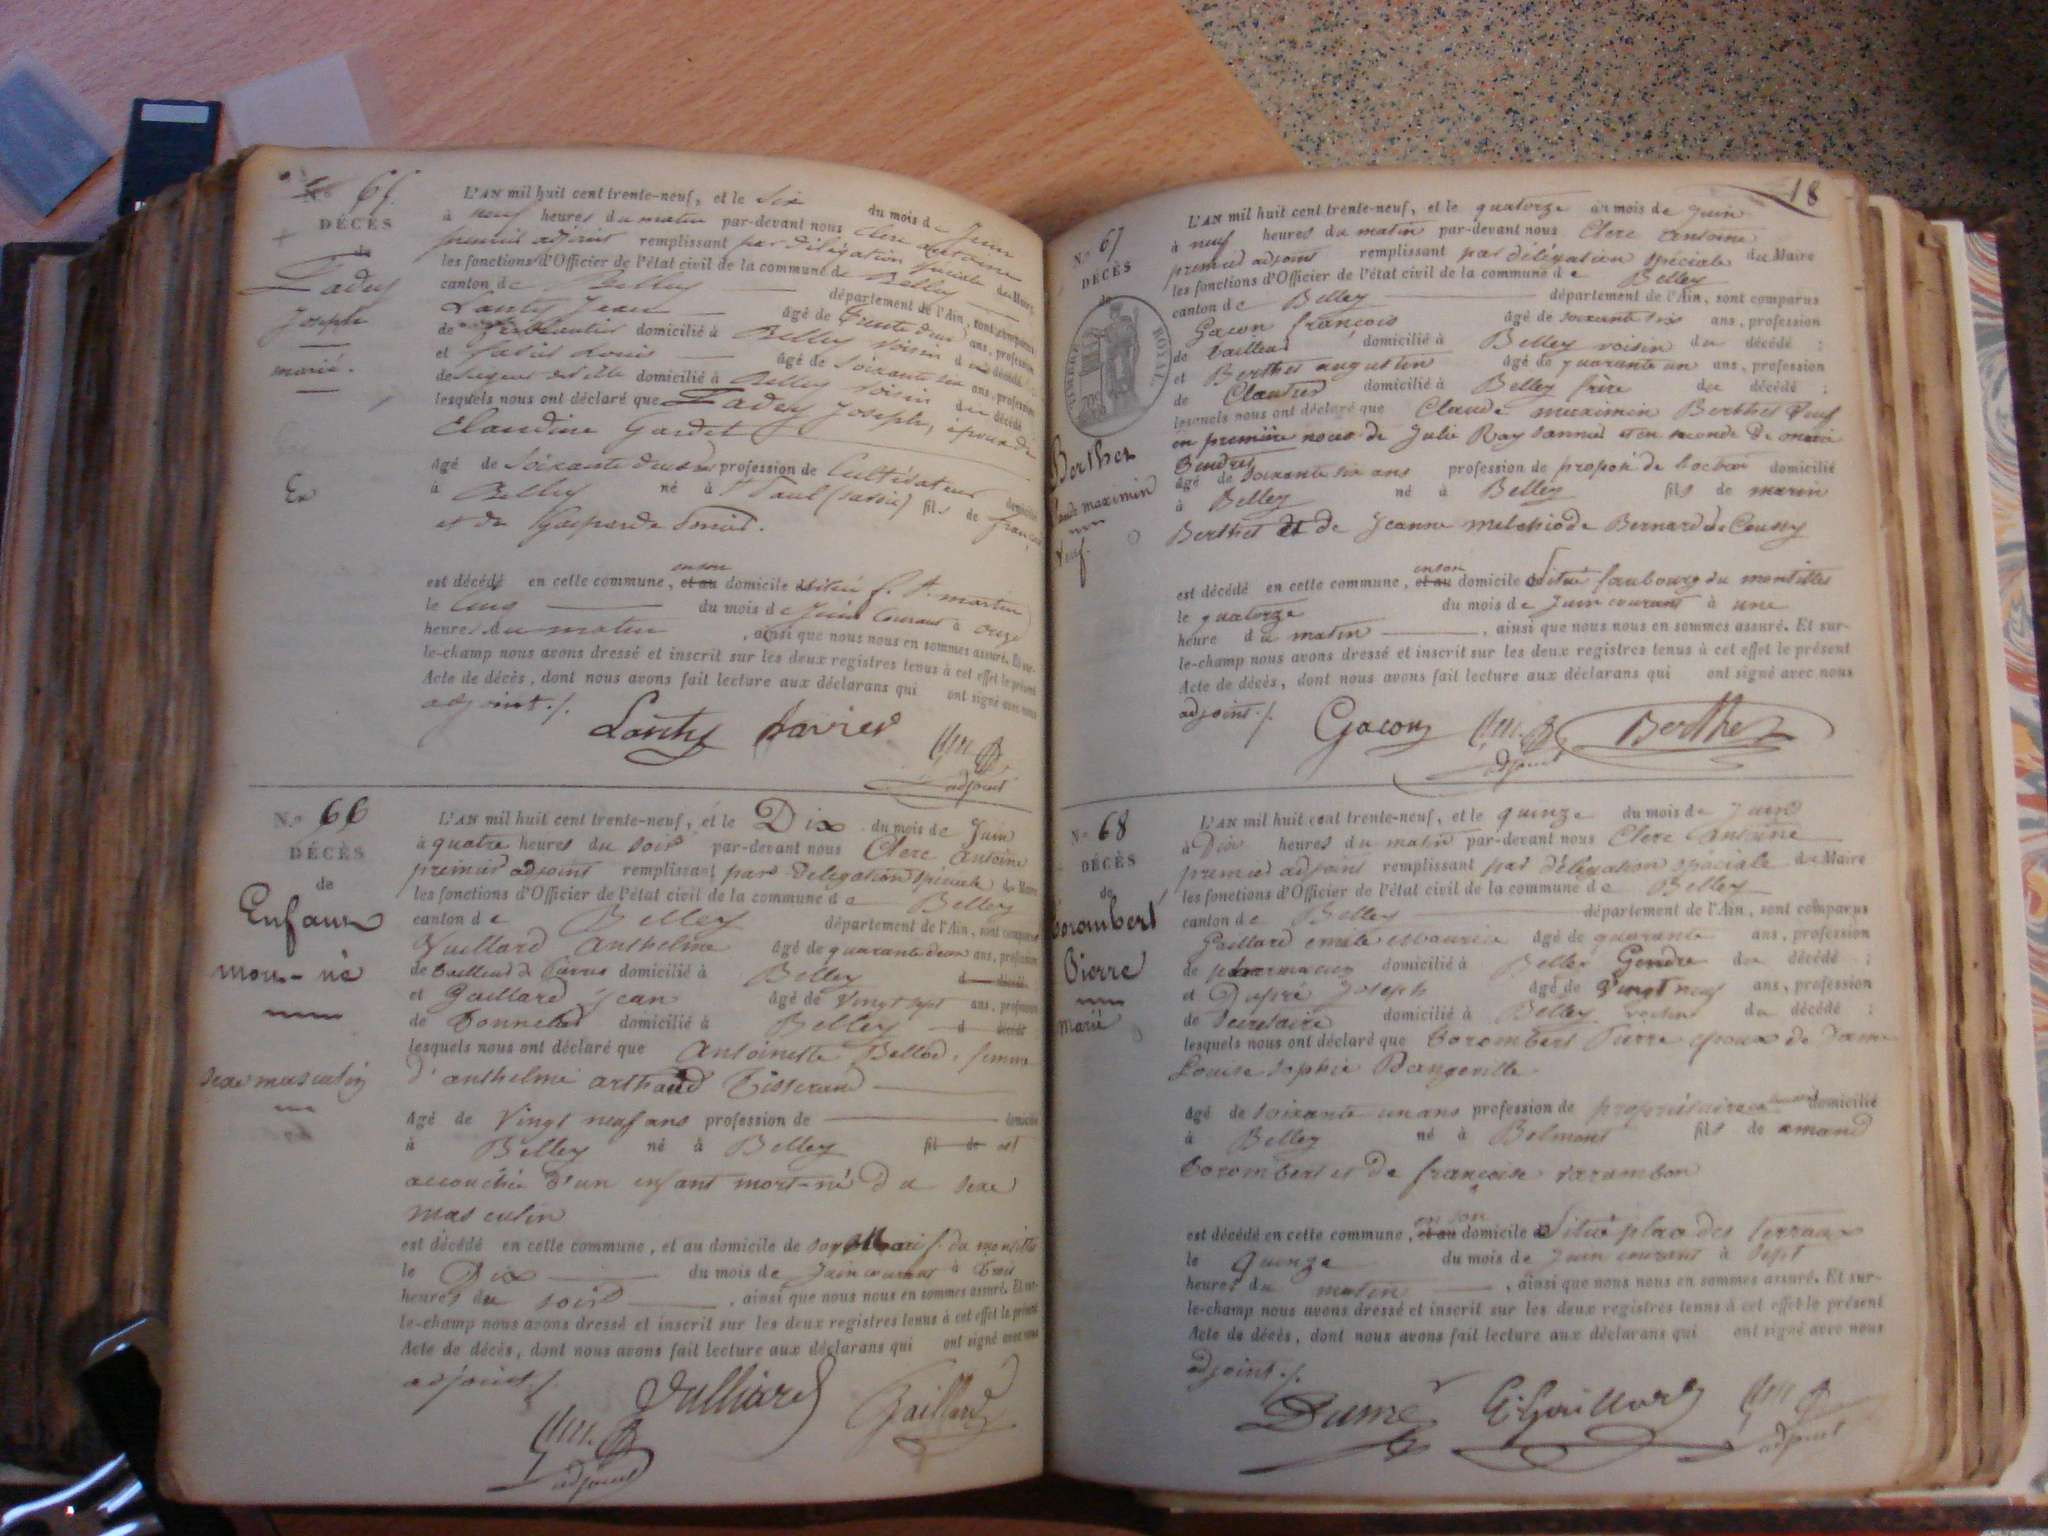 No 65.
DÉCÈS
de
Ladey
Joseph
marié.
L'AN mil huit cent trente-neuf, et le Six du mois de Juin
à neuf heures du matin par-devant nous Clerc Antoine
premier adjoint remplissant par délégation spéciale du Maire
les fonctions d'Officier de l'état civil de la commune de Belley
canton de Belley département de l'Ain, sont comparus
Lanty Jean âgé de Trente deux ans, profession
de domicilié à Belley voisin d décédé
et Louis âgé de Soixante six ans, profession
de domicilié à Belley voisin du décédé
lesquels nous ont déclaré que Ladey Joseph, époux de
Claudine Gardet
âgé de Soixante deux ans profession de Cultivateur domicilié
à Belley né à St Paul (Savoie) fils de françois
et de Gasparde
est décédé en cette commune, et au en son domicile situé f. St. martin
le Cinq du mois de Juin Courant à onze
heures du matin, ainsi que nous nous en sommes assuré. Et sur-
le-champ nous avons dressé et inscrit sur les deux registres tenus à cet effet le présent
Acte de décès, dont nous avons fait lecture aux déclarans qui ont signé avec nous
adjoint ./.
Lanty
adjoint
No 66
DÉCÈS
de
Enfant
mort-né
Sexe masculin
L'AN mil huit cent trente-neuf, et le Dix du mois de Juin
à quatre heures du soir par-devant nous Clerc Antoine
premier adjoint remplissant par délégation spéciale du Maire
les fonctions d'Officier de l'état civil de la commune de Belley
canton de Belley département de l'Ain, sont comparus
Vuillard Anthelme âgé de quarante deux ans, profession
de tailleur de Pierres domicilié à Belley d décédé
et Gaillard Jean âgé de Vingt sept ans, profession
de Tonnelier domicilié à Belley d décédé
lesquels nous ont déclaré que Antoinette Bellod, femme
d'anthelme arthaud Tisserand
âgé de Vingt neuf ans profession de domicilié
à Belley né à Belley fil de est
accouchée d'un enfant mort-né du sexe
masculin
est décédé en cette commune, et au domicile de son Mari f. du
le Dix du mois de Juin courant à trois
heures du soir, ainsi que nous nous en sommes assuré. Et sur-
le-champ nous avons dressé et inscrit sur les deux registres tenus à cet effet le présent
Acte de décès, dont nous avons fait lecture aux déclarans qui ont signé avec nous
adjoint ./.
Vulliard Gaillard
adjoint
18
No 67
DÉCÈS
de
TIMBRE ROYAL
Berthet
Claude maximin
Veuf.
L'AN mil huit cent trente-neuf, et le quatorze du mois de Juin
à neuf heures du matin par-devant nous Clerc Antoine
premier adjoint remplissant par délégation spéciale du Maire
les fonctions d'Officier de l'état civil de la commune de Belley
canton de Belley département de l'Ain, sont comparus
Gacon françois âgé de soixante six ans, profession
de tailleur domicilié à Belley voisin du décédé :
et Berthet augustin âgé de quarante un ans, profession
de Cloutier domicilié à Belley frère du décédé :
lesquels nous ont déclaré que Claude maximin Berthet Veuf
en première noces de Julie Ray et en seconde de marie
âgé de soixante six ans profession de préposé de l'octroi domicilié
à Belley né à Belley fils de marin
Berthet et de Jeanne melchiode Bernard de
est décédé en cette commune, et au en son domicile Situé faubourg du
le quatorze du mois de Juin courant à une
heure du matin, ainsi que nous nous en sommes assuré. Et sur-
le-champ nous avons dressé et inscrit sur les deux registres tenus à cet effet le présent
Acte de décès, dont nous avons fait lecture aux déclarans qui ont signé avec nous
adjoint ./.
Gacon Berthet
adjoint
No 68
DÉCÈS
de
Corombert
Pierre
marié
L'AN mil huit cent trente-neuf, et le quinze du mois de Juin
à Dix heures du matin par-devant nous Clerc Antoine
premier adjoint remplissant par délégation spéciale du Maire
les fonctions d'Officier de l'état civil de la commune de Belley
canton de Belley département de l'Ain, sont comparus
Gaillard emile Maurice âgé de quarante ans, profession
de pharmacien domicilié à Belley Gendre du décédé :
et Dupré Joseph âgé de Vingt neuf ans, profession
de Secrétaire domicilié à Belley voisin du décédé :
lesquels nous ont déclaré que Corombert Pierre époux de Dame
Louise Sophie Dangeville
âgé de soixante un ans profession de propriétaire domicilié
à Belley né à Belmont fils de amand
Corombert et de françoise varambon
est décédé en cette commune, et au en son domicile Situé place des Terreaux
le quinze du mois de Juin courant à Sept
heures du matin, ainsi que nous nous en sommes assuré. Et sur-
le-champ nous avons dressé et inscrit sur les deux registres tenus à cet effet le présent
Acte de décès, dont nous avons fait lecture aux déclarans qui ont signé avec nous
adjoint ./.
E. Gaillard
adjoint